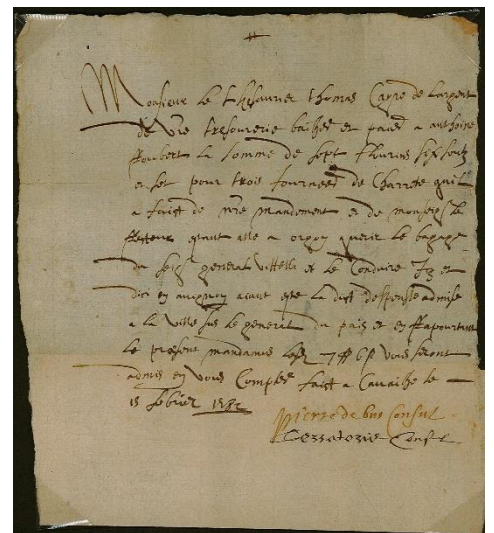 Monsieur le thesaurier thomas Cayre de largent
de vre tresourerie bailhes et paies a anthoine
Joubert la somme de sept flourins six soulz
et set pour trois journees de Charrete quil
a faict de nre mandement et de monseigr le
estant alle a orgon querir le bagage
du seigr general vittelli et le Conduire
dici en avignon aiant este la dict despense admise
a la ville sus le general du pais et en rapourtant
le present mandamus vous seront
admis en vous Comptes faict a Cavailhe le
15 febvrier
Pierre de bus Consul